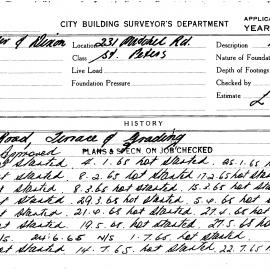 CITY BUILDING SURVEYOR'S DEPARTMENT
APPLICA
YEAR
Location 231 Rd.
Class St. Peters
Live Load
Foundation Pressure
Nature of Foundat
Depth of Footings
Checked by
Estimate £
HISTORY
Road, Terrace & Grading
Approved PLANS & SPECN. ON JOB CHECKED
Started 4.1.65 not started
not started 8.2.65 not started 17.2.65 not started
not started 8.3.65 not started 15.3.65 not started
not started 29.3.65 not started 5.4.65
not started 21.4.65 not started 27.4.65
not started 19.5.65 not started 27.5.65
N/S 24.6.65 N/S 1.7.65 not started
not started 14.7.65 not started 22.7.65